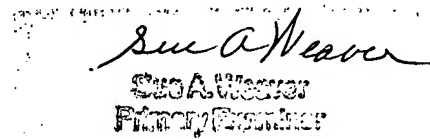 Sue A Weaver
Sue A. Weaver
Primary Examiner